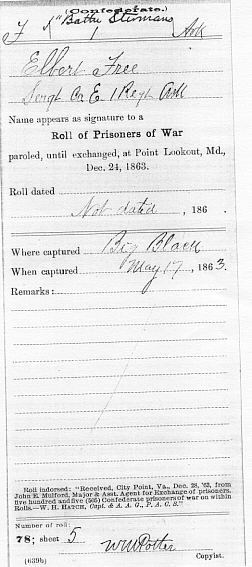 (Confederate.)
F 1 Battn Stirmans 1 Ark
Elbert Free
Sergt Co E, 1 Regt Ark
Name appears as signature to a
Roll of Prisoners of War
paroled, until exchanged, at Point Lookout, Md.,
Dec. 24, 1863.
Roll dated
Not dated, 186 .
Where captured Big Black
When captured May 17, 1863.
Remarks:
Roll indorsed: "Received, City Point, Va., Dec. 28, '63, from
John E. Mulford, Major & Asst. Agent for Exchange of prisoners,
five hundred and five (505) Confederate prisoners of war on within
Rolls.—W. H. HATCH, Capt. & A. A. G., P. A. C. S."
Number of roll:
78; sheet 5
WM Potter
(639b) Copyist.